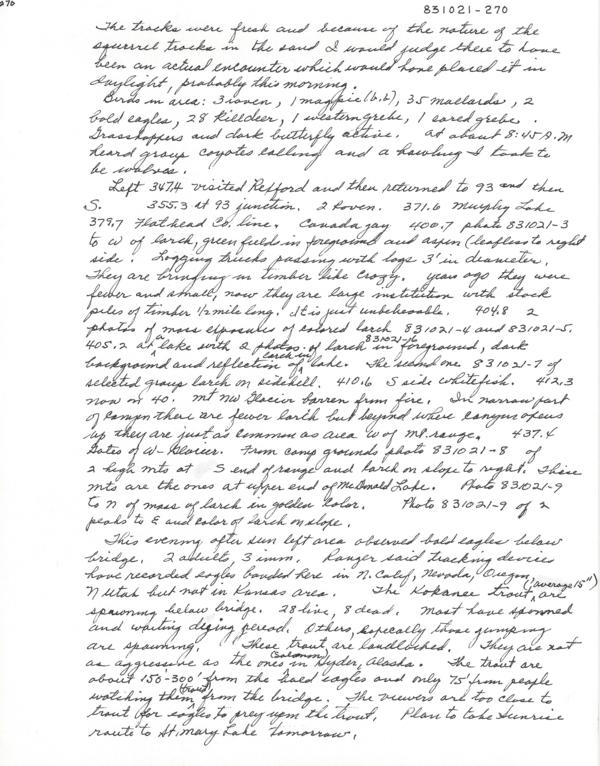 270
831021-270
The tracks were fresh and because of the nature of the
squirrel tracks in the sand I would judge there to have
been an actual encounter which would have placed it in
daylight, probably this morning.
Birds in area: 3 raven, 1 magpie (b.b), 35 mallards, 2
bald eagles, 28 killdeer, 1 western grebe, 1 eared grebe.
Grasshoppers and dark butterfly active. At about 8:45 A.M
heard group coyotes calling and a howling I took to
be wolves.
Left 347.4 visited Refford and then returned to 93 and then
S. 355.3 at 93 junction. 2 Raven. 371.6 Murphy Lake
379.7 Flathead Co. line. Canada jay 400.7 photo 831021-3
to W of larch, green field in foreground and aspen (leafless to right
side. Logging trucks passing with logs 3' in diameter.
They are bringing in timber like crazy. Years ago they were
fewer and small, now they are large institution with stock
piles of timber 1/2 mile long. It is just unbelievable. 404.8 2
photos of mass exposures of colored larch 831021-4 and 831021-5.
405.2 at a lake with 2 photos of larch 831021-6 in foreground, dark
background and reflection of larch in lake. The second one 831021-7 of
selected group larch on sidehill. 410.6 S side Whitefish. 412.3
now on 40. Mt NW Glacier barren from fire. In narrow part
of canyon there are fewer larch but beyond where canyon opens
up they are just as common as area W of mt. range. 437.4
Gates of W-Glacier. From camp grounds photo 831021-8 of
2 high mts at S end of range and larch on slope to right. These
mts are the ones at upper end of McDonald Lake. Photo 831021-9
to N of mass of larch in golden color. Photo 831021-9 of 2
peaks to E and color of larch on slope.
This evening after sun left area observed bald eagles below
bridge. 2 adults, 3 imm. Ranger said tracking devices
have recorded eagles banded here in N. Calif, Nevada, Oregon,
N Utah but not in Kansas area. The Kokanee trout (average 15") are
spawning below bridge. 28 live, 8 dead. Most have spawned
and waiting dying period. Others, especially those jumping
are spawning. These trout are landlocked. They are not
as aggressive as the ones (salmon) in Hyder, Alaska. The trout are
about 150'-300' from the bald eagles and only 75' from people
watching them (trout) from the bridge. The viewers are too close to
trout for eagles to prey upon the trout. Plan to take Sunrise
route to St. Mary Lake tomorrow.